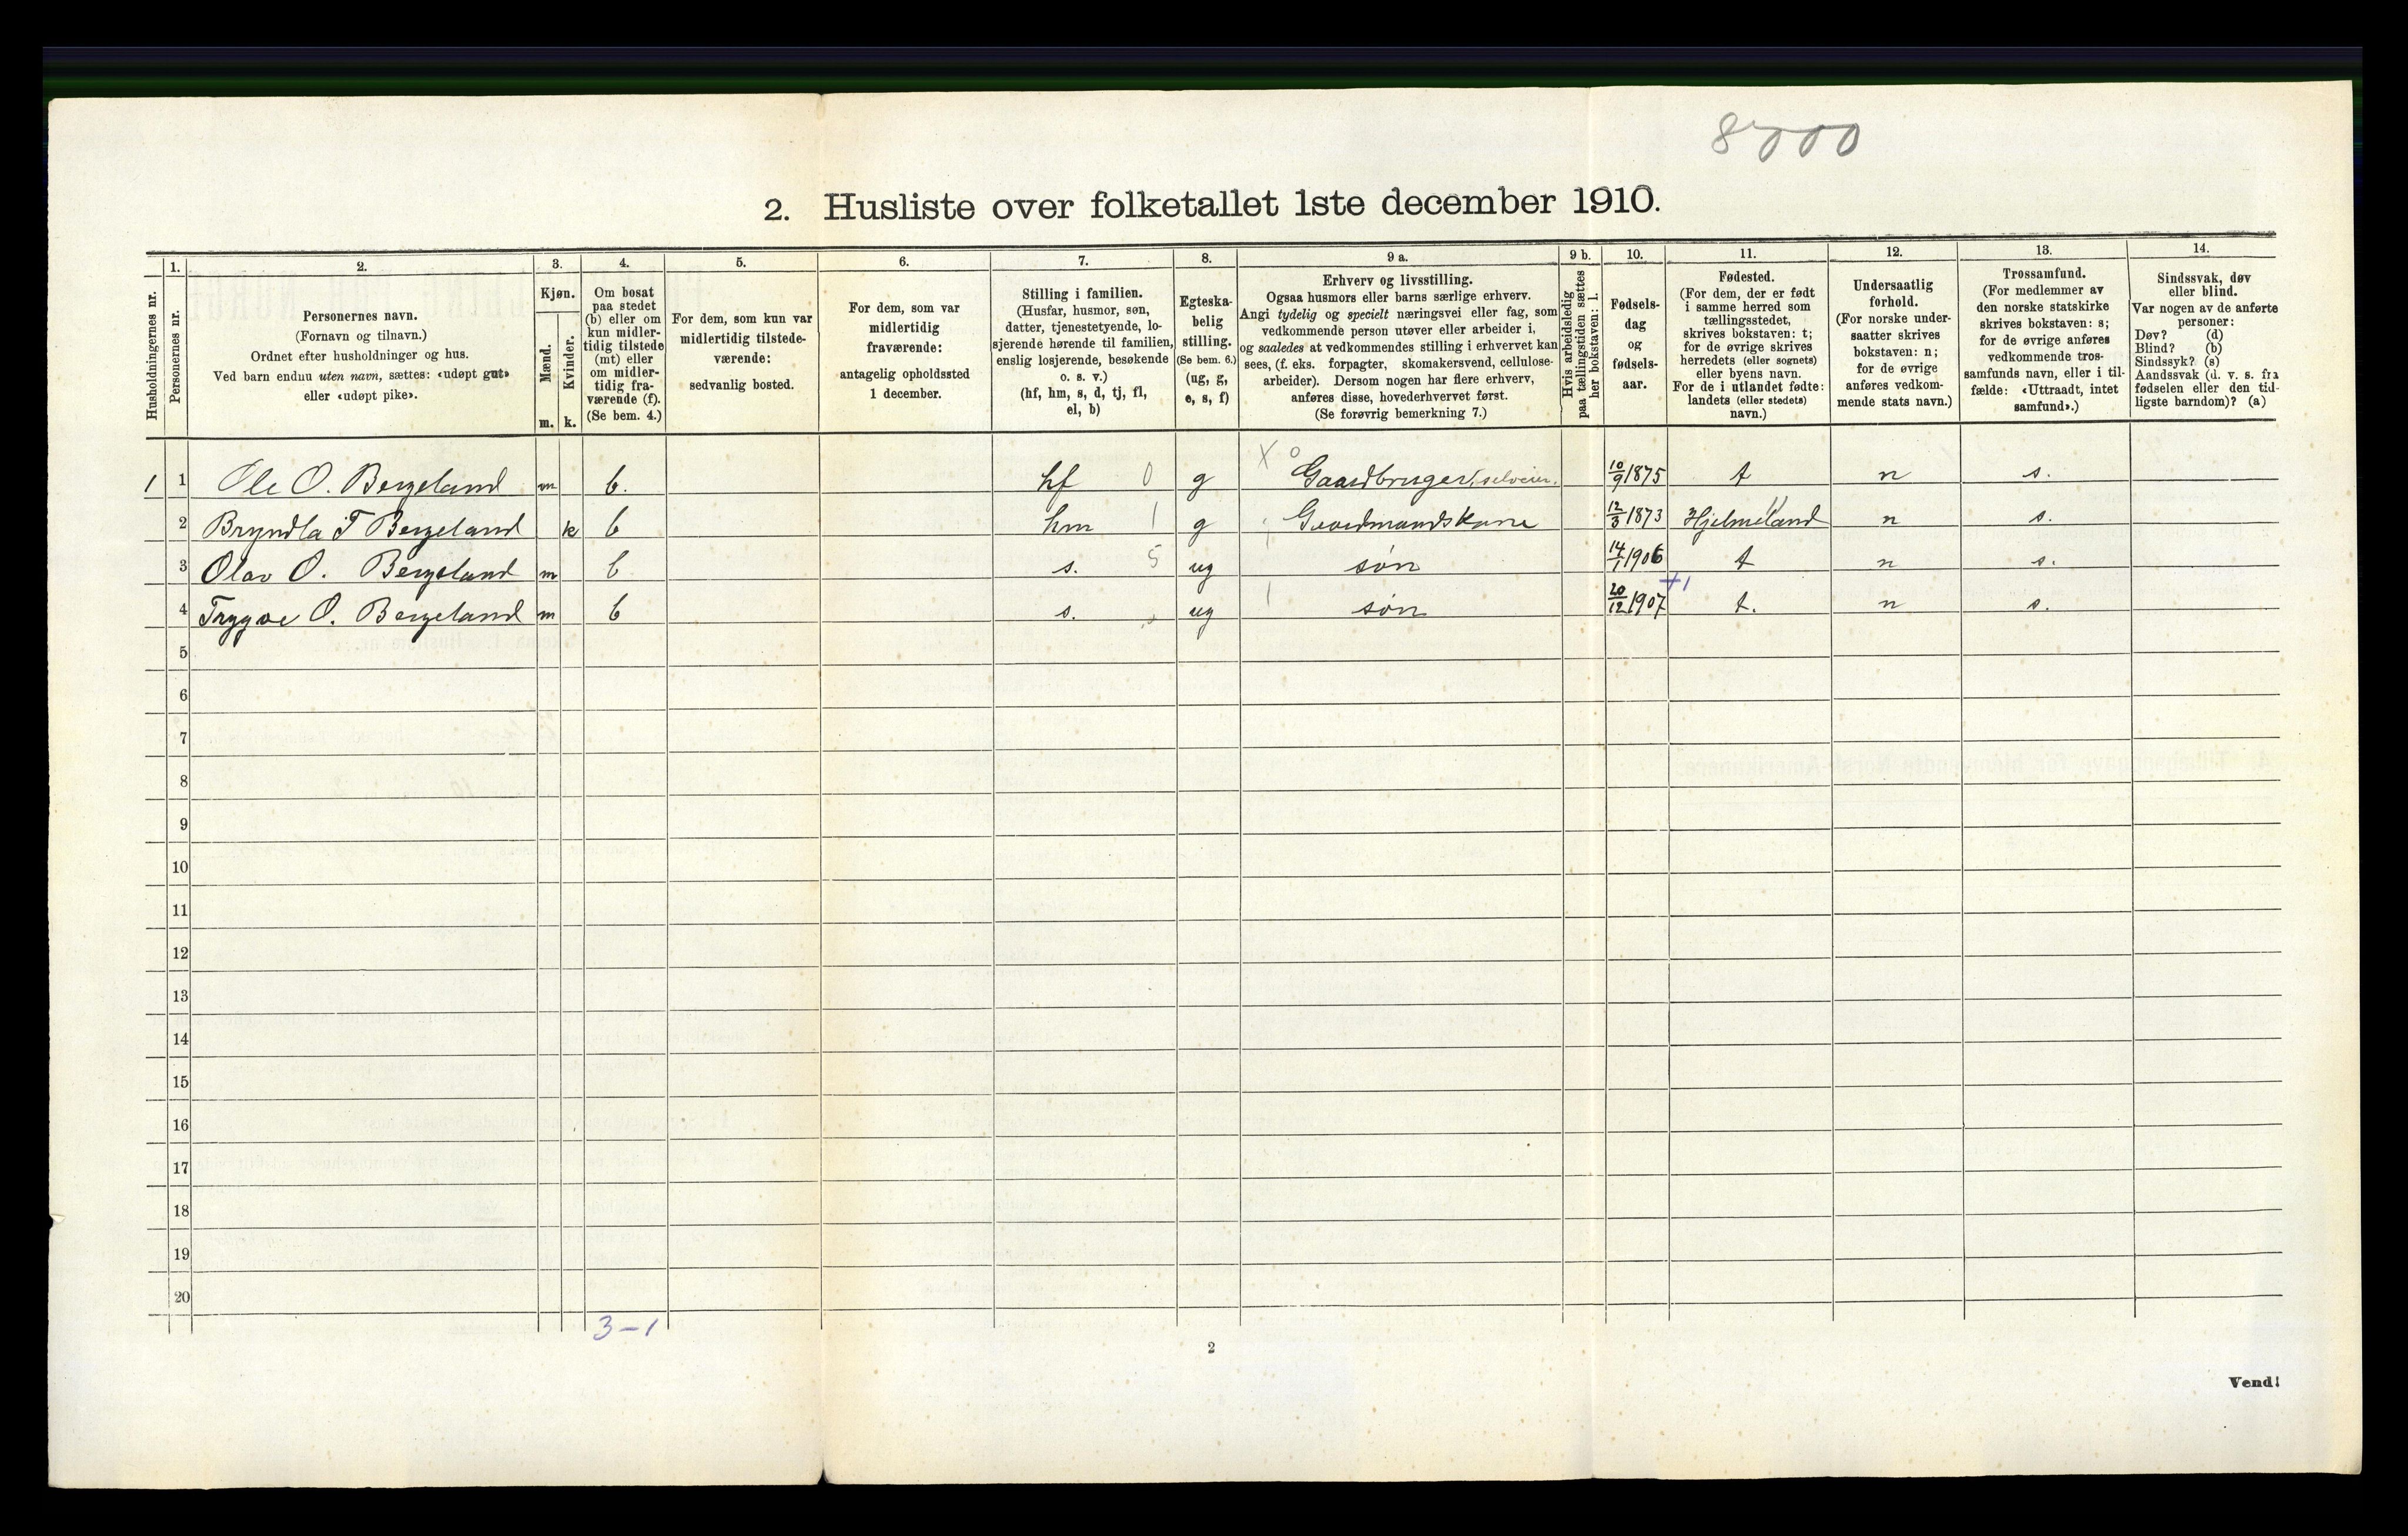 8000
2. Husliste over folketallet 1ste december 1910.
Husholdningernes nr.
1.
Personernes nr.
2.
Personernes navn.
(Fornavn og tilnavn.)
Ordnet efter husholdninger og hus.
Ved barn endnu uten navn, sættes: «udøpt gut»
eller «udøpt pike».
3.
Kjøn.
Mænd.
Kvinder.
m. k.
4.
Om bosat
paa stedet
(b) eller om
kun midler-
tidig tilstede
(mt) eller
om midler-
tidig fra-
værende (f).
(Se bem. 4.)
5.
For dem, som kun var
midlertidig tilstede-
værende:
sedvanlig bosted.
6.
For dem, som var
midlertidig
fraværende:
antagelig opholdssted
1 december.
7.
Stilling i familien.
(Husfar, husmor, søn,
datter, tjenestetyende, lo-
sjerende hørende til familien,
enslig losjerende, besøkende
o. s. v.)
(hf, hm, s, d, tj, fl,
el, b)
8.
Egteska-
belig
stilling.
(Se bem. 6.)
(ug, g,
e, s, f)
9 a.
Erhverv og livsstilling.
Ogsaa husmors eller barns særlige erhverv.
Angi tydelig og specielt næringsvei eller fag, som
vedkommende person utøver eller arbeider i,
og saaledes at vedkommendes stilling i erhvervet kan
sees, (f. eks. forpagter, skomakersvend, cellulose-
arbeider). Dersom nogen har flere erhverv,
anføres disse, hovederhvervet først.
(Se forøvrig bemerkning 7.)
9 b.
Hvis arbeidsledig
paa tællingstiden sættes
her bokstaven: l.
10.
Fødsels-
dag
og
fødsels-
aar.
11.
Fødested.
(For dem, der er født
i samme herred som
tællingsstedet,
skrives bokstaven: t;
for de øvrige skrives
herredets (eller sognets)
eller byens navn.
For de i utlandet fødte:
landets (eller stedets)
navn.)
12.
Undersaatlig
forhold.
(For norske under-
saatter skrives
bokstaven: n;
for de øvrige
anføres vedkom-
mende stats navn.)
13.
Trossamfund.
(For medlemmer av
den norske statskirke
skrives bokstaven: s;
for de øvrige anføres
vedkommende tros-
samfunds navn, eller i til-
fælde: «Uttraadt, intet
samfund».)
14.
Sindssvak, døv
eller blind.
Var nogen av de anførte
personer:
Døv? (d)
Blind? (b)
Sindssyk? (s)
Aandssvak (d. v. s. fra
fødselen eller den tid-
ligste barndom)? (a)
X o
1 1 Ole O. Bergeland m b. hf 0 g Gaardbruger, selveier. 10/9 1875 t n s.
2 Bryndla T Bergeland k b hm 1 g Gaardmandskone 12/3 1873 Hjelmeland n s.
3 Olav O. Bergeland m b s. 5 ug søn 14/1 1906 t n s.
+1
4 Trygve O. Bergeland m b s. ug søn 20/12 1907 t. n s.
5
6
7
8
9
10
11
12
13
14
15
16
17
18
19
20
3-1
2
Vend!